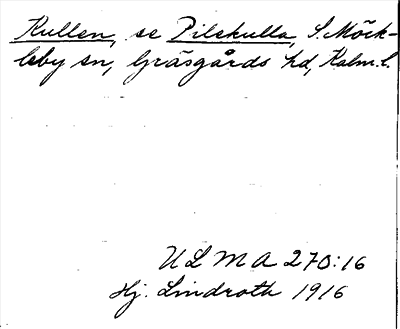 Kullen, se Pilekulla, S. Möck-
leby sn, Gräsgårds hd, Kalm. l.
ULMA 270:16
Hj. Lindroth 1916